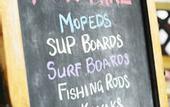 Mopeds
SUP Boards
Surf Boards
Fishing Rods